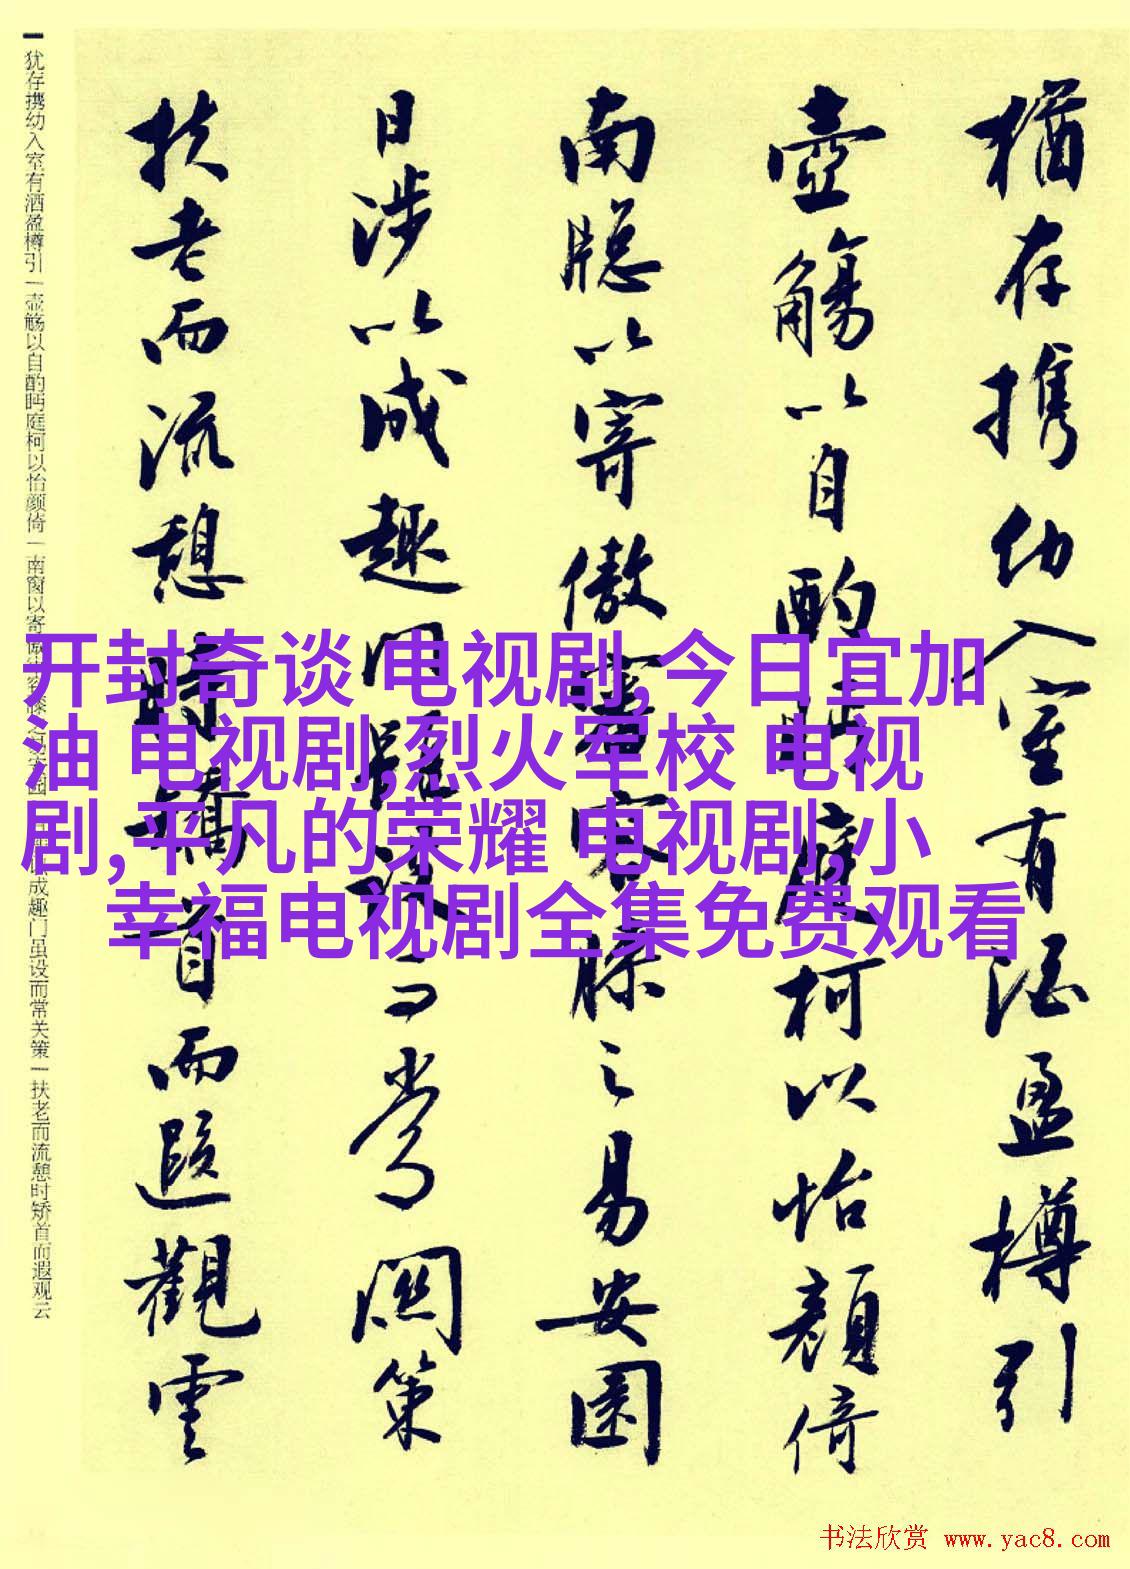 猶存携幼入室有酒盈樽引
壺觴以自酌眄庭柯以怡顔倚
南牎以寄傲審容膝之易安園
日涉以成趣門雖設而常関策
扶老而流憩時矯首而遐觀雲
犹存携幼入室有酒盈樽引一壶觞以自酌眄庭柯以怡颜倚一南窗以寄
成趣门虽设而常关策一扶老而流憩时矫首而遐观云
开封奇谈 电视剧,今日宜加
油 电视剧,烈火军校 电视
剧,平凡的荣耀 电视剧,小
幸福电视剧全集免费观看
书法欣赏 www.yac8.com